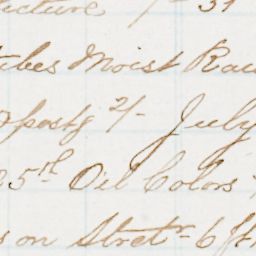 icture
ubes Moist Raw
postg 2/- July
25rd Oil Colors
on Stretr- 6 ft